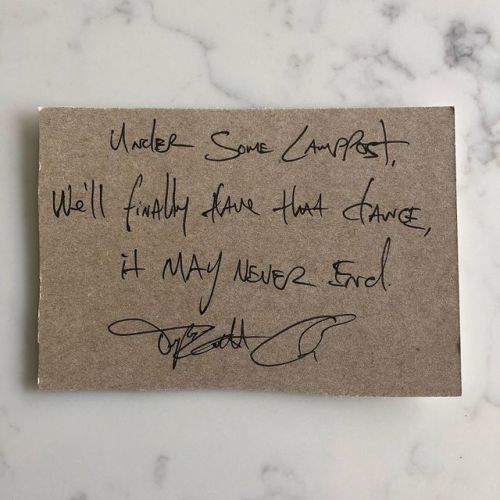 Under Some Lamppost,
We'll finally have that dance,
it MAY NEVER End.